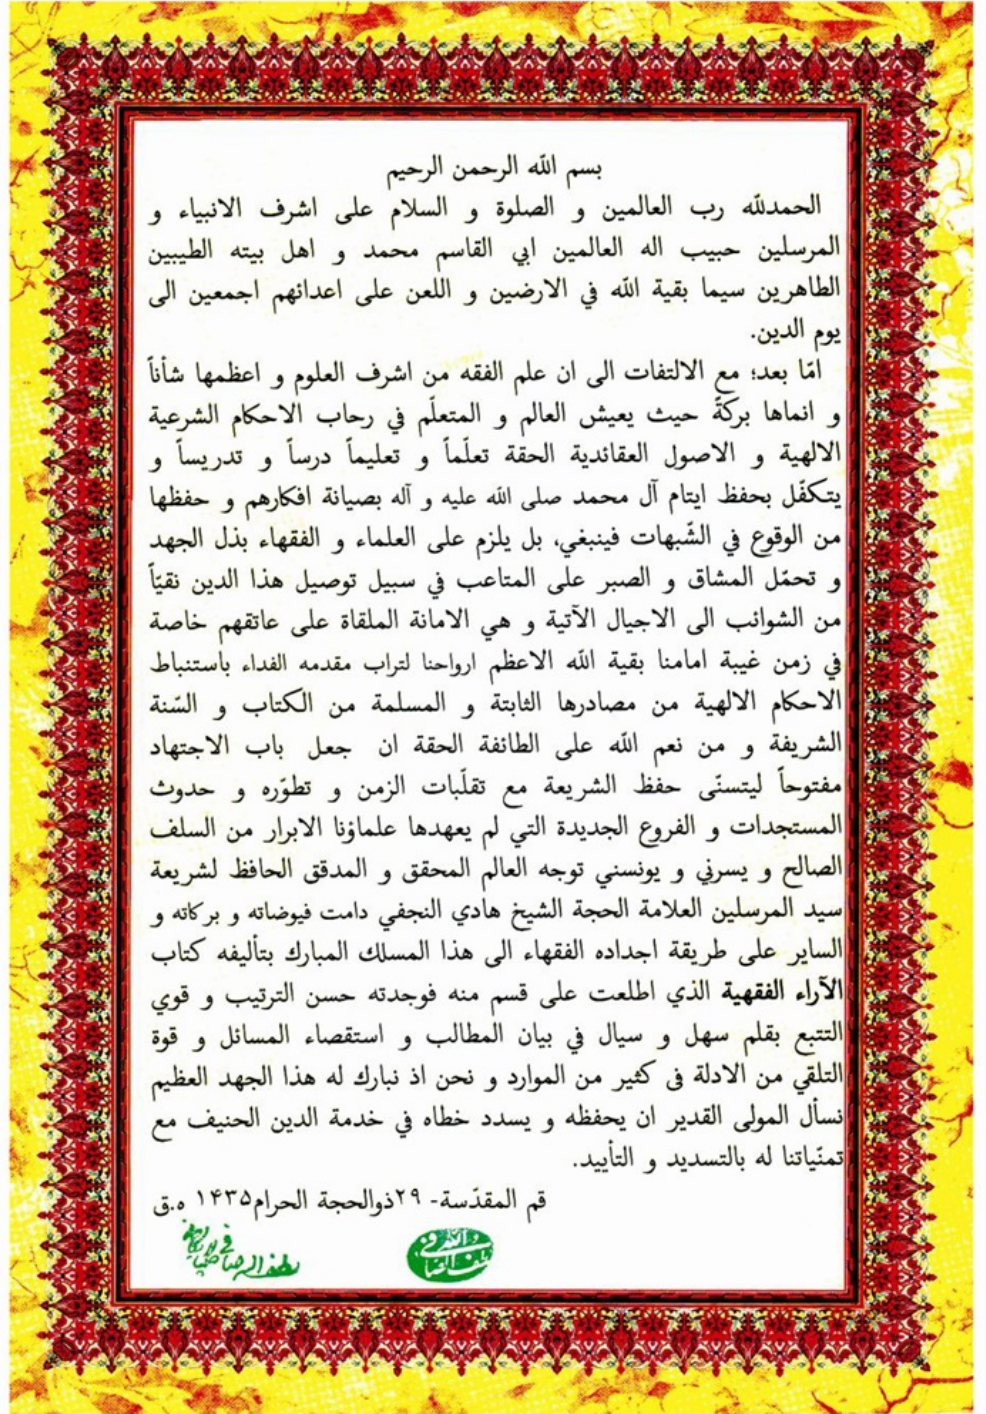 بسم الله الرحمن الرحيم
الحمدلله رب العالمين و الصلوة و السلام على اشرف الانبياء و
المرسلين حبيب اله العالمين ابي القاسم محمد و اهل بيته الطيبين
الطاهرين سيما بقية الله في الارضين و اللعن على اعدائهم اجمعين الى
يوم الدين.
امّا بعد؛ مع الالتفات الى ان علم الفقه من اشرف العلوم و اعظمها شأناً
و انماها بركةً حيث يعيش العالم و المتعلّم في رحاب الاحكام الشرعية
الالهية و الاصول العقائدية الحقة تعلّماً و تعليماً درساً و تدريساً و
يتكفّل بحفظ ايتام آل محمد صلى الله عليه و آله بصيانة افكارهم و حفظها
من الوقوع في الشّبهات فينبغي، بل يلزم على العلماء و الفقهاء بذل الجهد
و تحمّل المشاق و الصبر على المتاعب في سبيل توصيل هذا الدين نقيّاً
من الشوائب الى الاجيال الآتية و هي الامانة الملقاة على عاتقهم خاصة
في زمن غيبة امامنا بقية الله الاعظم ارواحنا لتراب مقدمه الفداء باستنباط
الاحكام الالهية من مصادرها الثابتة و المسلمة من الكتاب و السّنة
الشريفة و من نعم الله على الطائفة الحقة ان جعل باب الاجتهاد
مفتوحاً ليتسنّى حفظ الشريعة مع تقلّبات الزمن و تطوّره و حدوث
المستجدات و الفروع الجديدة التي لم يعهدها علماؤنا الابرار من السلف
الصالح و يسرني و يونسني توجه العالم المحقق و المدقق الحافظ لشريعة
سيد المرسلين العلامة الحجة الشيخ هادي النجفي دامت فيوضاته و بركاته و
الساير على طريقة اجداده الفقهاء الى هذا المسلك المبارك بتأليفه كتاب
الآراء الفقهية الذي اطلعت على قسم منه فوجدته حسن الترتيب و قوي
التتبع بقلم سهل و سيال في بيان المطالب و استقصاء المسائل و قوة
التلقي من الادلة فى كثير من الموارد و نحن اذ نبارك له هذا الجهد العظيم
نسأل المولى القدير ان يحفظه و يسدد خطاه في خدمة الدين الحنيف مع
تمنّياتنا له بالتسديد و التأييد.
قم المقدّسة- ۲۹ذوالحجة الحرام۱۴۳۵ ه.ق
لطف الله صافي گلپايگاني
لطف الله الصافي